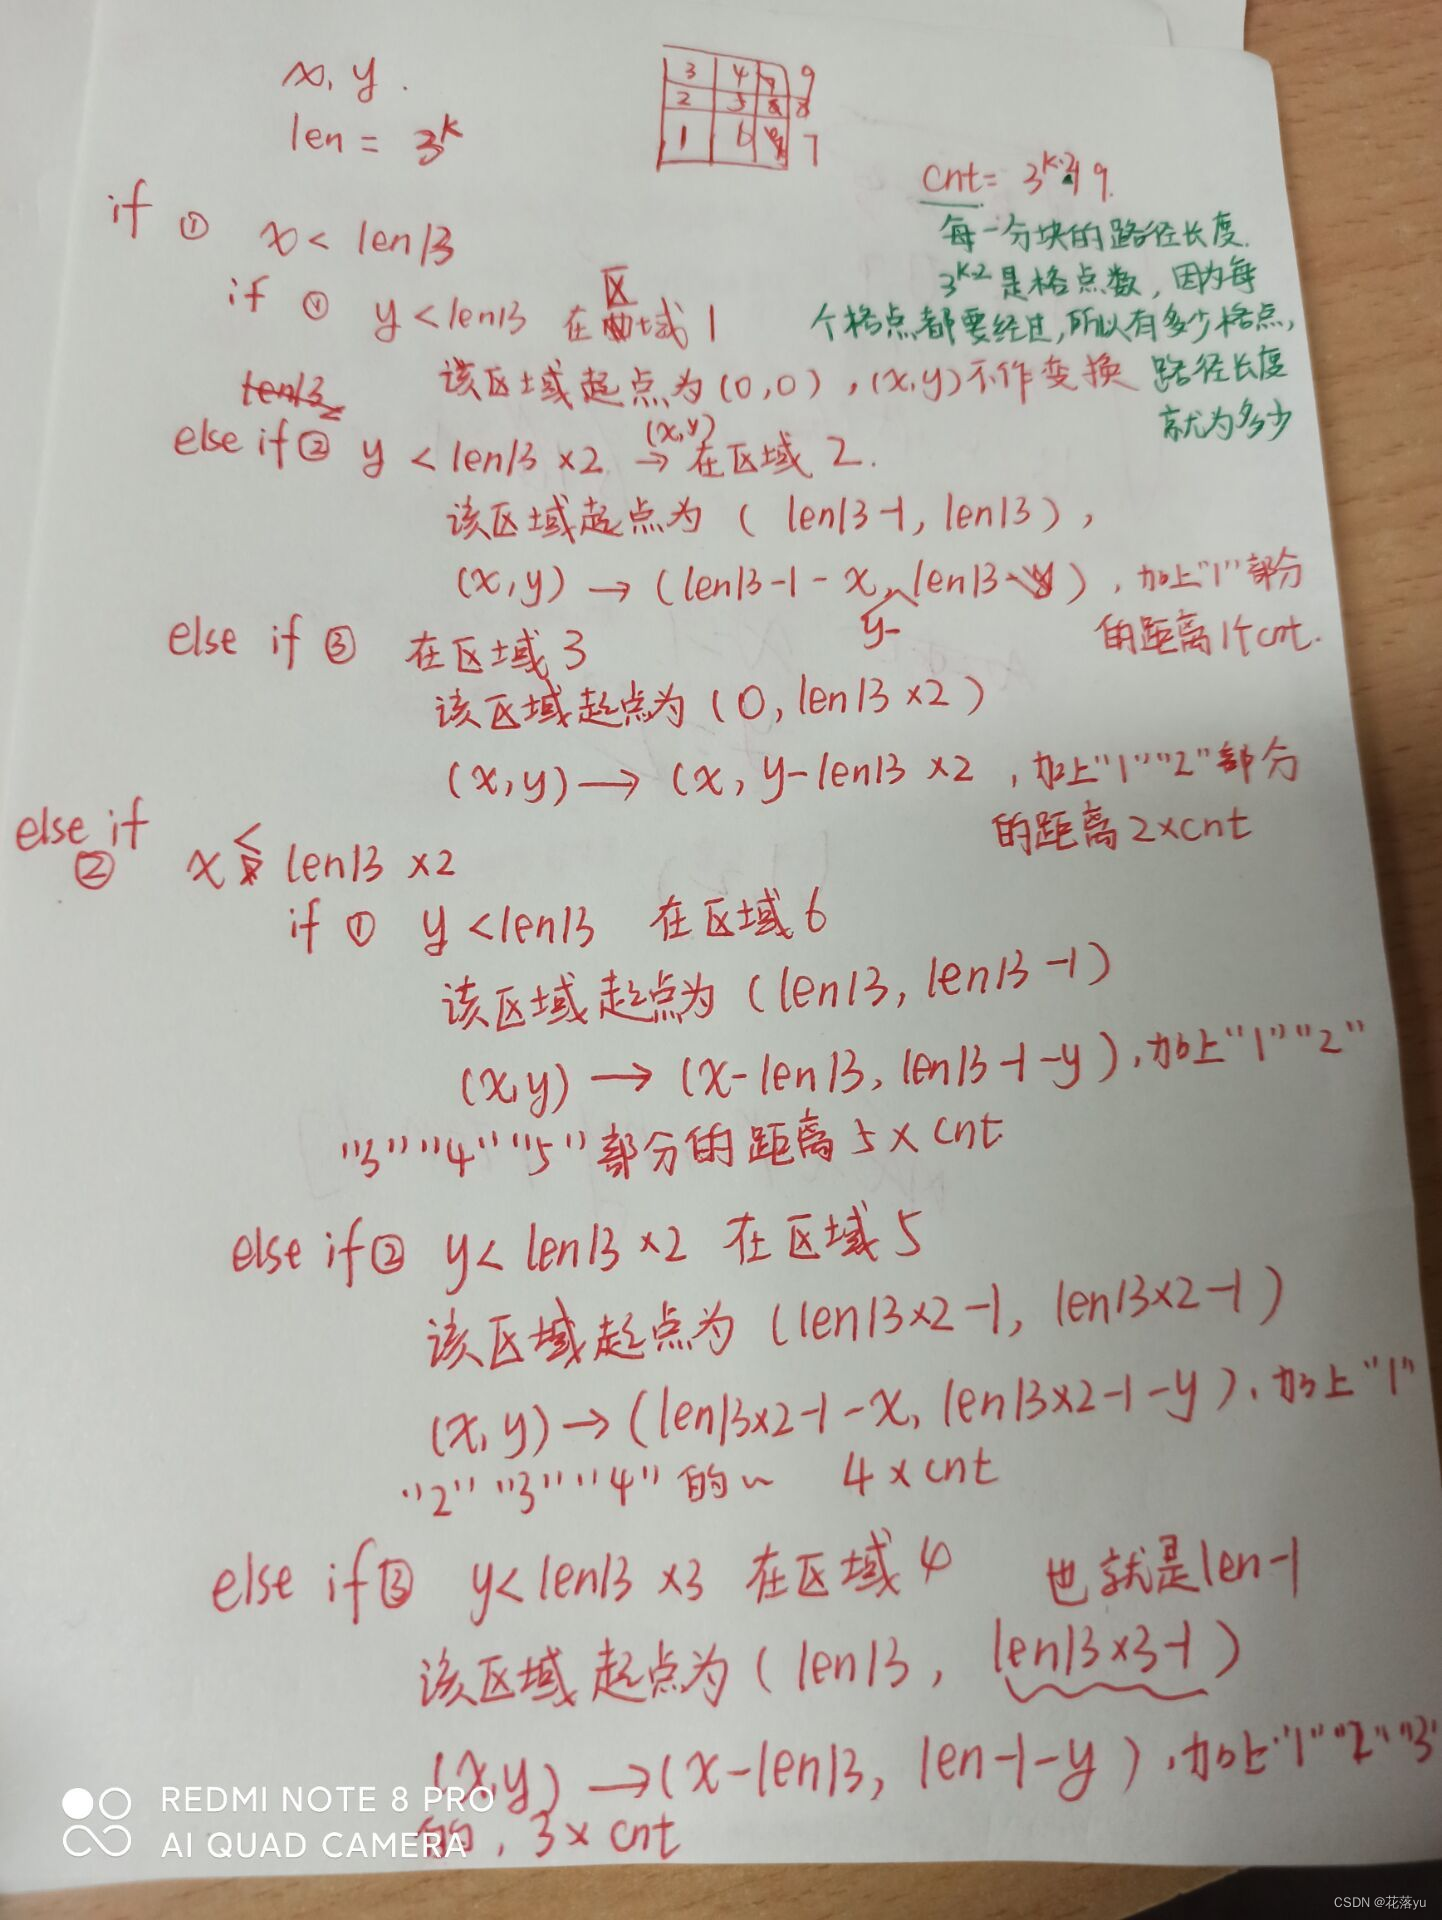 x, y.
len = 3^k
3 4 9
2 5 8 8
1 6 7
cnt = 3^k·2 / 9.
每一分块的路径长度.
3^k·2 是格点数，因为每
个格点都要经过，所以有多少格点，
路径长度
就为多少
if ① x < len/3
if ① y < len/3 在区域1
该区域起点为(0,0)，(x,y)不作变换
len/3
else if ② y < len/3 ×2 → (x,y) 在区域 2.
该区域起点为 ( len/3-1, len/3 ),
(x,y) → (len/3-1-x, y-len/3 ) , 加上"1"部分
的距离1个cnt.
else if ③ 在区域3
该区域起点为 (0, len/3 ×2 )
(x,y) → (x, y-len/3 ×2 , 加上"1""2"部分
的距离 2×cnt
else if ② x < len/3 ×2
if ① y < len/3 在区域6
该区域起点为 (len/3, len/3 -1)
(x,y) → (x-len/3, len/3-1-y) , 加上"1""2"
"3""4""5"部分的距离 5×cnt
else if ② y < len/3 ×2 在区域5
该区域起点为 (len/3×2-1, len/3×2-1)
(x,y) → (len/3×2-1-x, len/3×2-1-y) , 加上"1"
"2""3""4"的~ 4×cnt
else if ③ y < len/3 ×3 在区域4 也就是len-1
该区域起点为 (len/3, len/3×3-1)
(x,y) → (x-len/3, len-1-y) , 加上"1""2""3"
的, 3×cnt
REDMI NOTE 8 PRO
AI QUAD CAMERA
CSDN @花落yu